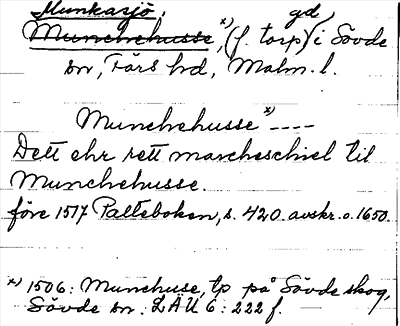 Munkasjö, gd
Munchehusse x), (f. torp) i Sövde
sn, Färs hd, Malm. l.
Munchehusse x) ----
Dett ehr rett marcheschiel til
Munchehusse.
före 1517 Palteboken, s. 420. avskr. o. 1650.
x) 1506: Munchuse, tp på Sövde skog,
Sövde sn. LÄU 6: 222 f.